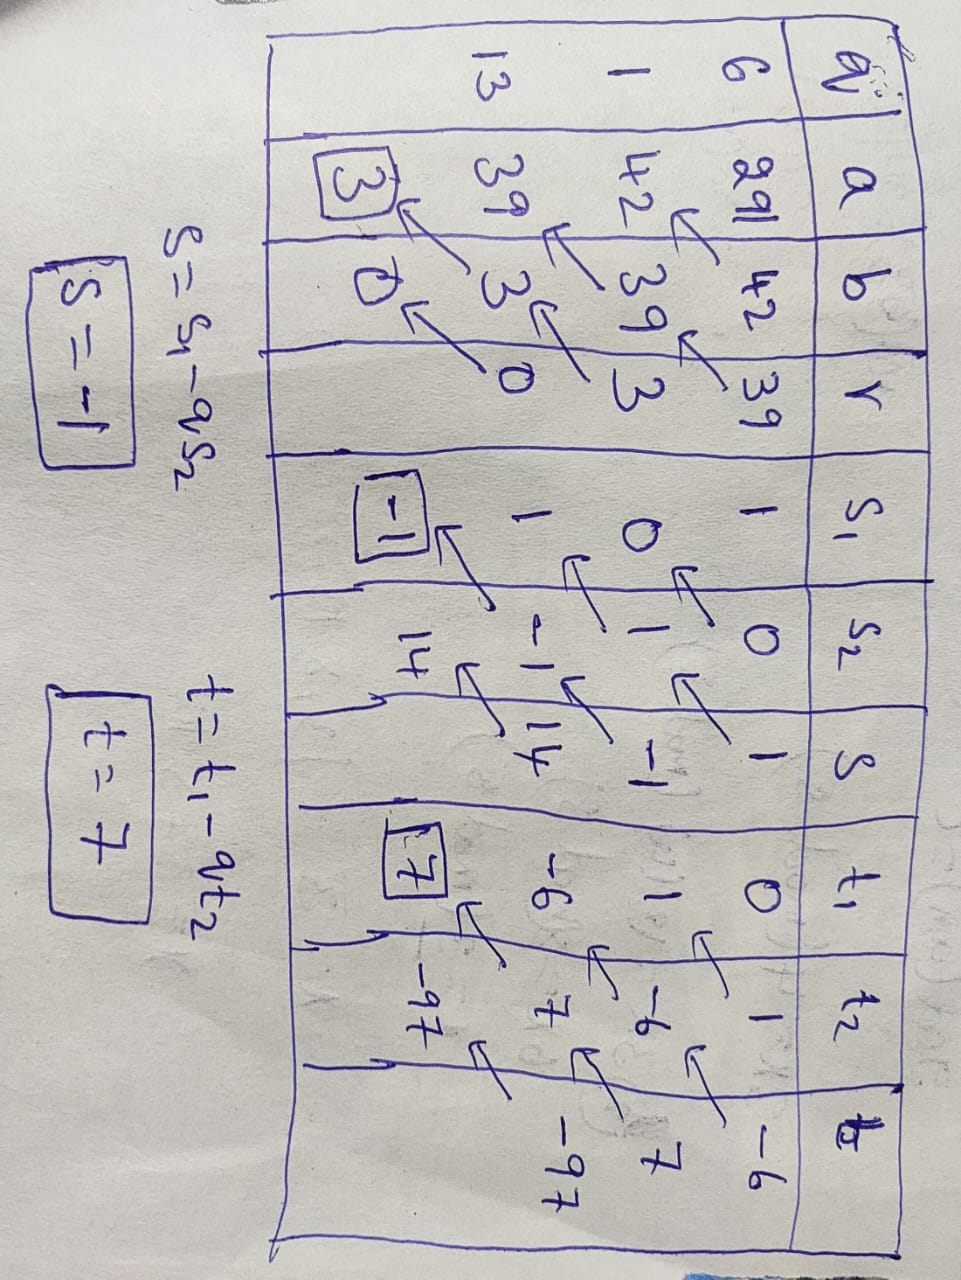 q a b r s₁ s₂ s t₁ t₂ t
6 291 42 39 1 0 1 0 1 -6
1 42 39 3 0 1 -1 1 -6 7
13 39 3 0 1 -1 14 -6 7 -97
3 0 -1 14 7 -97
s = s₁ - qs₂ t = t₁ - qt₂
s = -1 t = 7